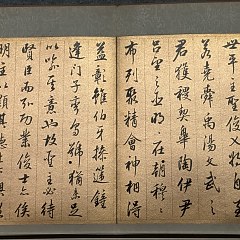 世平主聖俊乂將自
若堯舜禹湯文武之
君獲稷契皋陶伊尹
呂望之臣明〻在朝穆〻
布列聚精會神相得
益彰雖伯牙操遞鐘
逢門子彎烏號猶未足
以喻其意也故聖主必待
賢臣而弘功業俊士亦俟
明主以顯其德上下俱